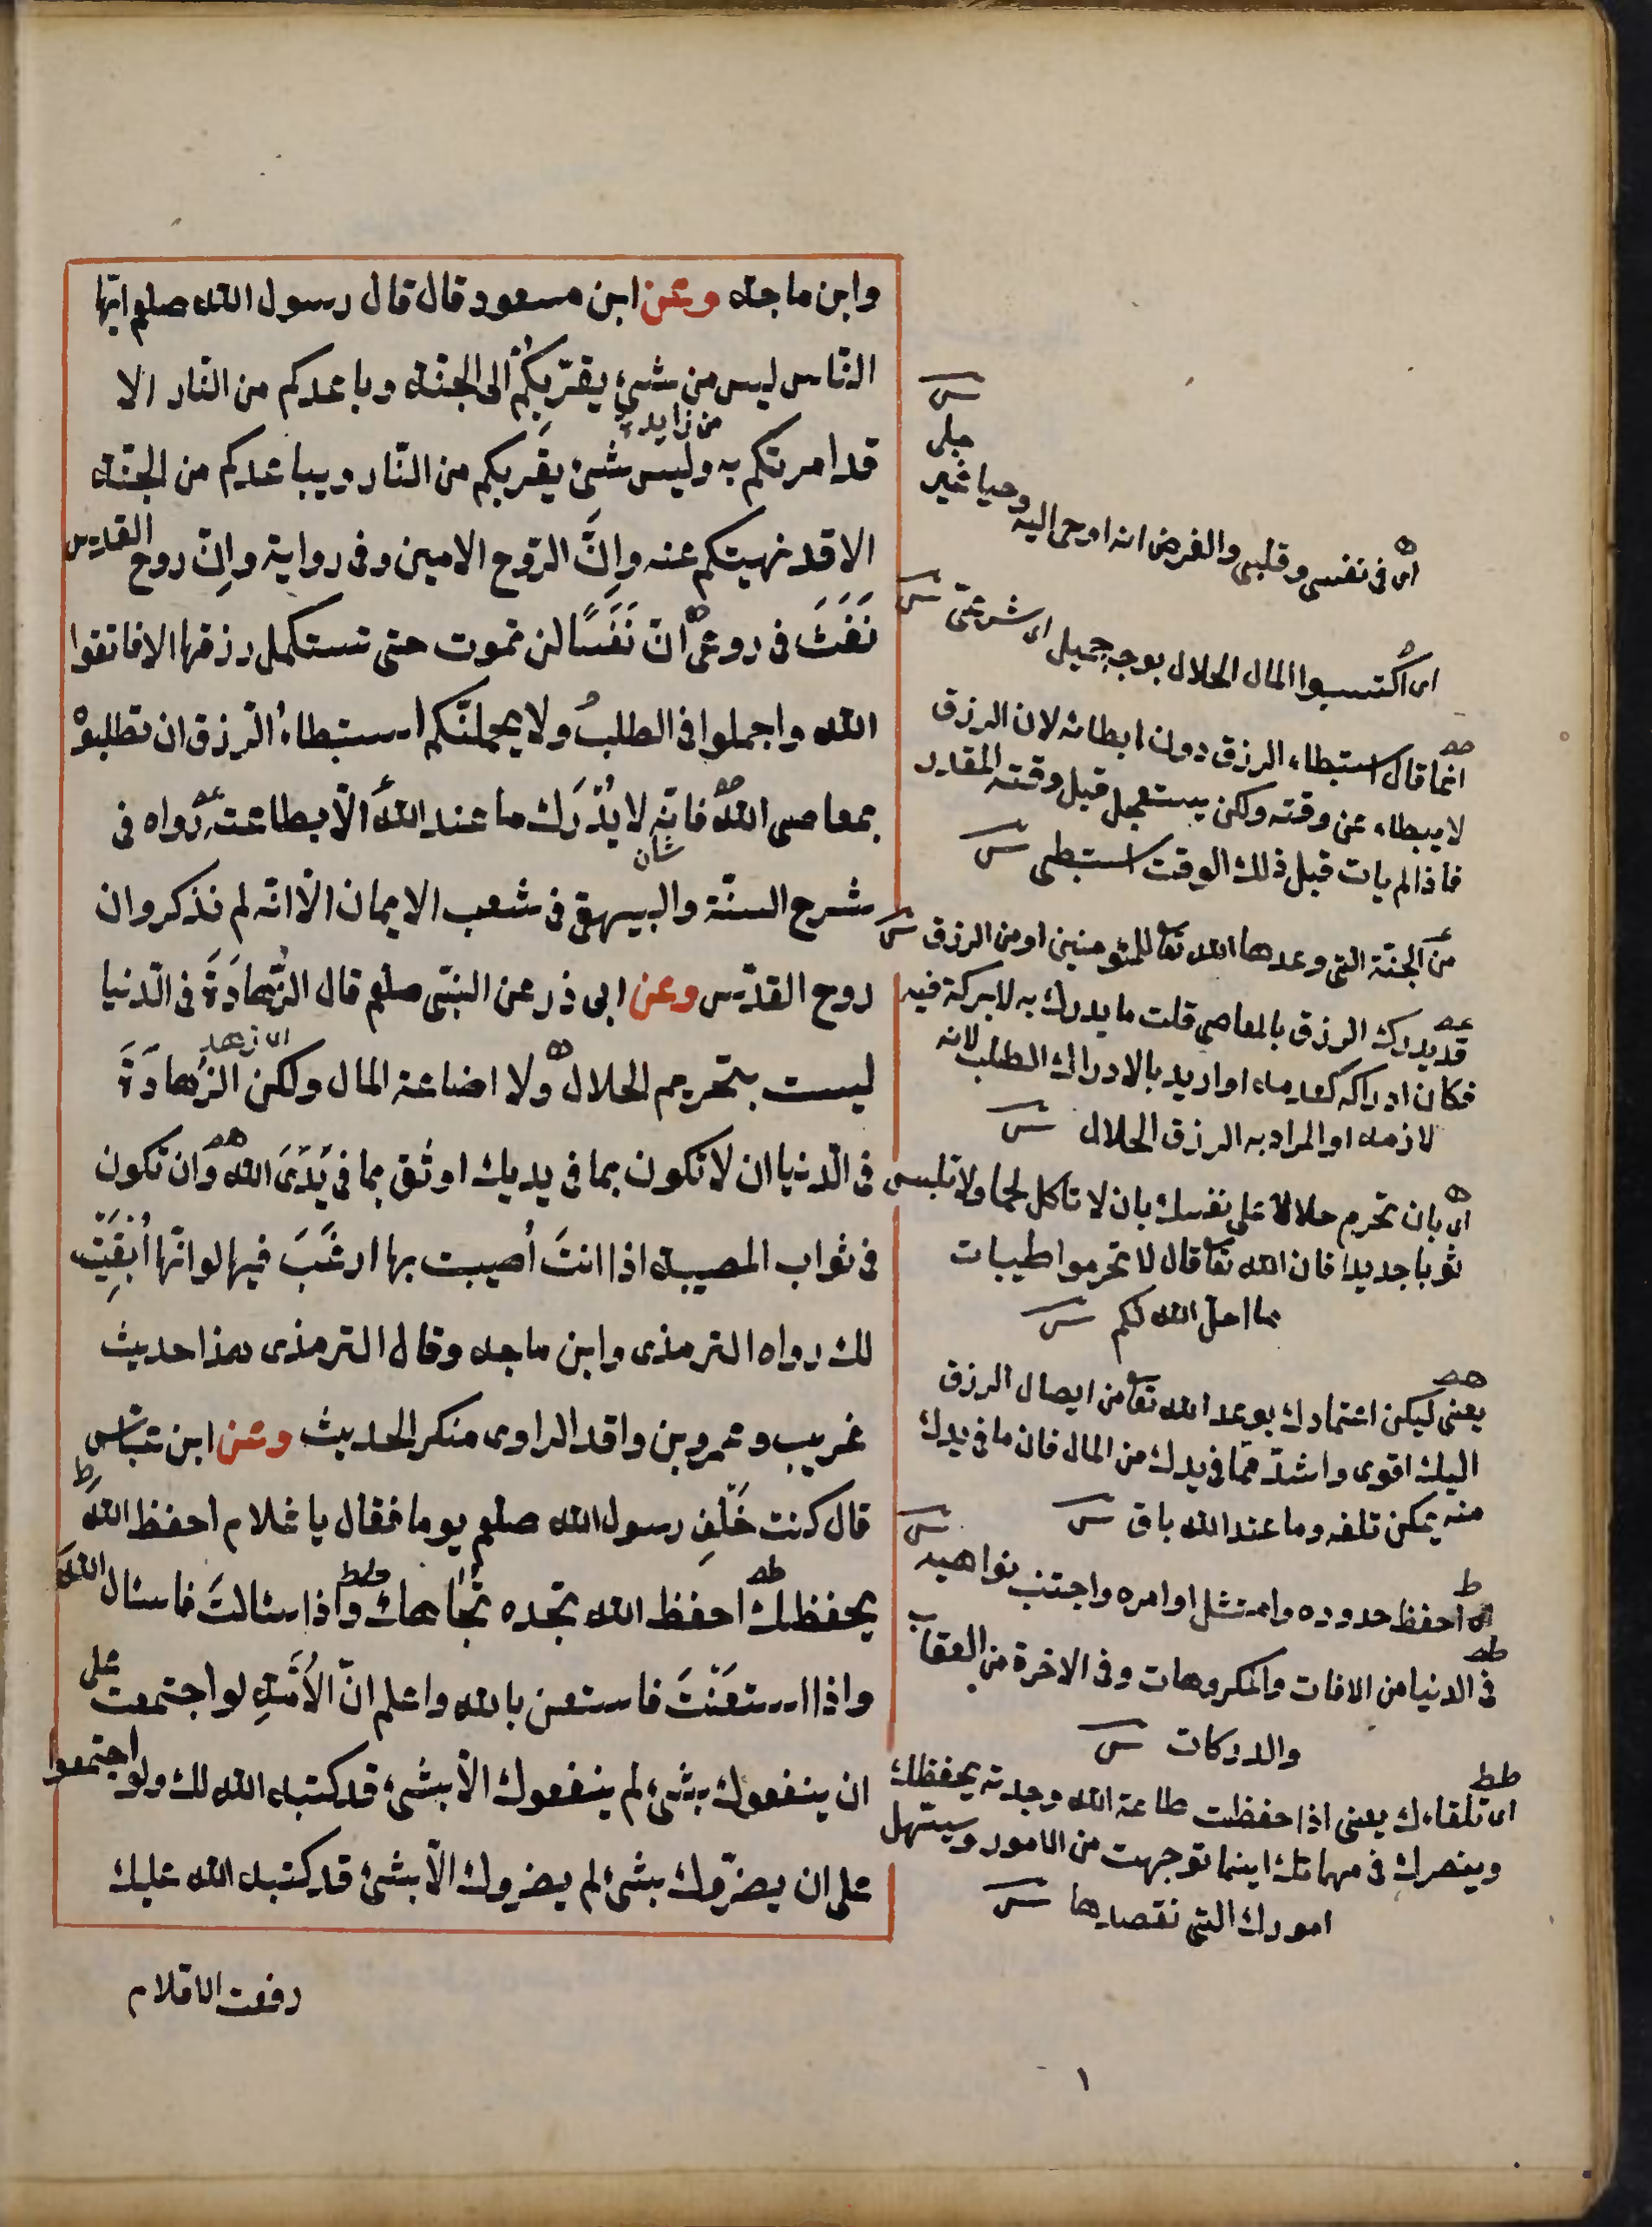 وابن ماجة وعن ابن مسعود قال قال رسول الله صلعم ايّها
النّاس ليس من شئ يقرّبكم الى الجنّة وباعدكم من النّار الا
من زايدة
قد امرتكم به وليس شئ يقربكم من النّار ويباعدكم من الجنّة
الا قد نهيتكم عنه وانّ الرّوح الامين وفى رواية وانّ روح القدس
نَفَثَ فى روعى انّ نَفْسًا لن تموت حتى تستكمل رزقها الا فاتقوا
الله واجملوا فى الطلب ولا يحملنّكم استبطاء الرّزق ان تطلبوْ
بمعاصى الله فانّه لا يُدْرَك ما عند الله الّا بطاعته رواه فى
شان
شرح السنّة والبيهقى فى شعب الايمان الّا انّه لم نذكر وان
روح القدّس وعن ابى ذر عن النبّى صلعم قال الزُّهادَةَ فى الدّنيا
اى زهد
ليست بتحريم الحلال ولا اضاعة المال ولكن الزُهادَةَ
فى الدّنيا ان لا تكون بما فى يديك اوثق بما فى يَدَىَ الله وان تكون
فى ثواب المصيبة اذا انتَ اُصيبت بها ارغَبَ فيها لو انّها اُبقِيَتْ
لك رواه الترمذى وابن ماجه وقال الترمذى هذا حديث
غريب وعمرو بن واقد الراوى منكر الحديث وعن ابن عبّاس
قال كنت خَلْفِ رسول الله صلعم يوما فقال يا غلام احفظ الله
يحفظك احفظ الله تجده تُجاهك واذا سئالتَ فاسئال الله
واذا استعَنْتَ فاستعن بالله واعلم انّ الاُمَّةِ لو اجتمعت على
ان ينفعوك بشئ لم ينفعوك الّا بشئ قد كتبه الله لك ولو اجتمعوا
على ان يضرّوك بشئ لم يضروك الّا بشئ قد كتبه الله عليك
رفعت الاقلام
اى فى نفسى وقلبى والغرض انه اوحى اليه وحيا غير
جلى
اى اكتسبوا المال الحلال بوجه جميل اى شرعىّ
انما قال استبطاء الرزق دون ابطائه لان الرزق
لا يبطاء عن وقته ولكن يستعجل قبل وقته المقدر
فاذا لم يات قبل ذلك الوقت استبطى
من الجنّة التى وعدها الله تعا للمؤمنين او من الرزق
قد يدرك الرزق بالمعاصى قلت ما يدرك به لا بركة فيه
فكان ادراكه كعدمه او اريد بالادراك الطلب لانه
لازمه او المراد به الرزق الحلال
اى بان تحرم حلالا على نفسك بان لا تاكل لحما ولا تلبس
ثوبا جديدا فان الله تعا قال لا تحرموا طيبات
ما احل الله لكم
يعنى ليكن اعتمادك بوعد الله تعا من ايصال الرزق
اليك اقوى واشدّ ممّا فى يدك من المال فان ما فى يدك
منه يمكن تلفه وما عند الله باق
احفظ حدوده وامتثل اوامره واجتنب نواهيه
فى الدنيا من الافات والمكروهات وفى الاخرة من العقاب
والدركات
اى تلقاءك يعنى اذا حفظت طاعة الله وجدته يحفظك
وينصرك فى مهماتك اينما توجهت من الامور ويسهل
امورك التى تقصدها
١